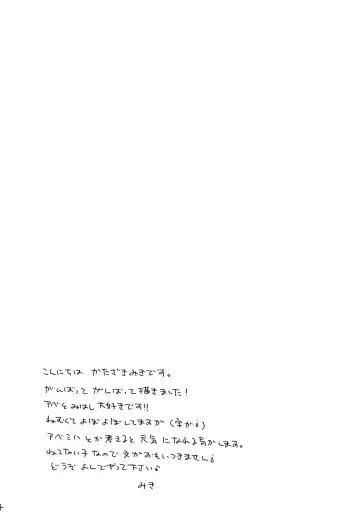 こんにちは かたざきみきです。
がんばって がんばって描きました!
アベとみはし 大好きです!!
ねむくて よぼよぼしてますが (字が)
アベミハ とか考えると 元気 になれる気がします。
ねてない子 なので 文がおもいつきません
どうぞ よんでやって下さい
みき